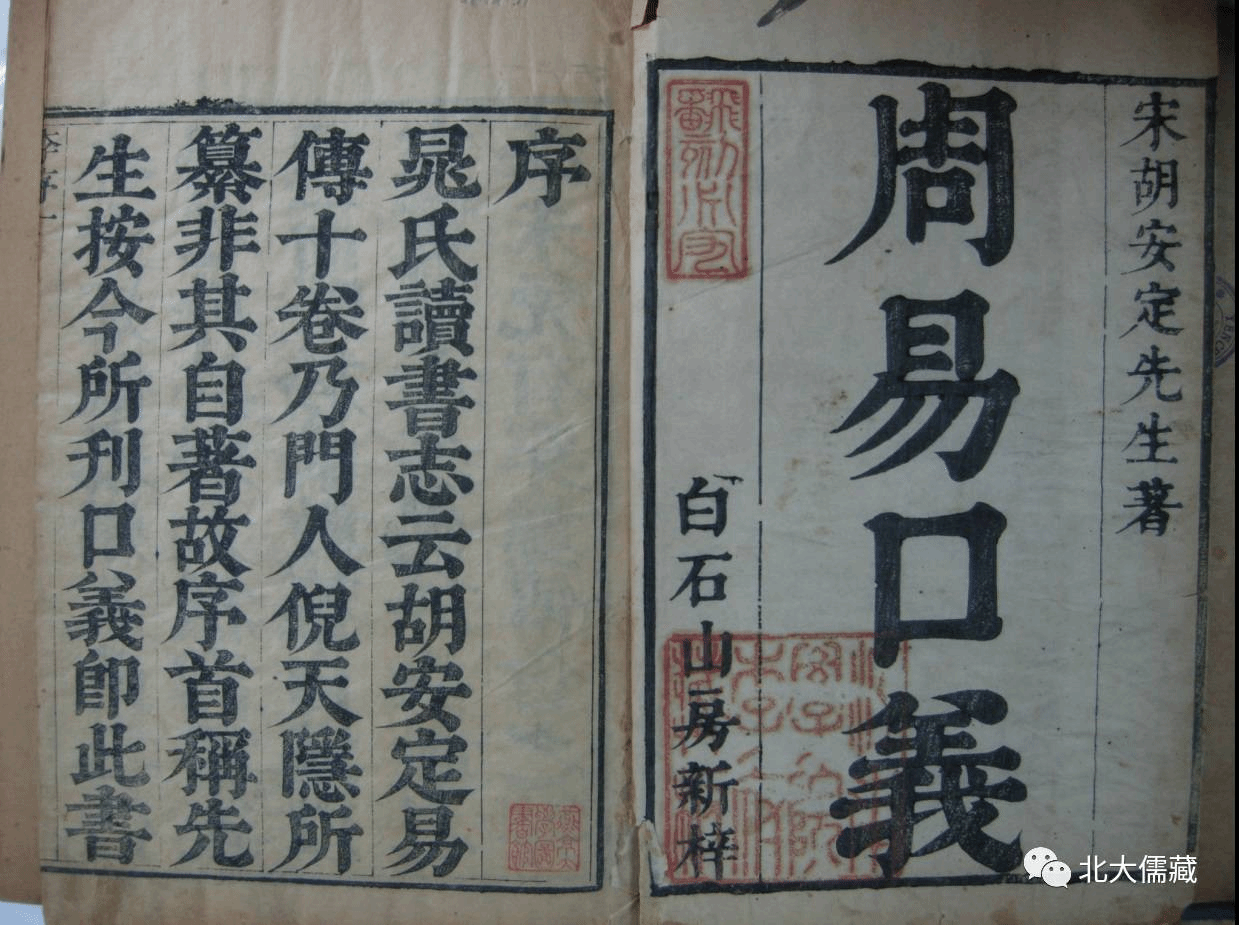 宋胡安定先生著
周易口義
白石山房新梓
序
晁氏讀書志云胡安定易
傳十卷乃門人倪天隱所
纂非其自著故序首稱先
生按今所刊口義卽此書
北大儒藏